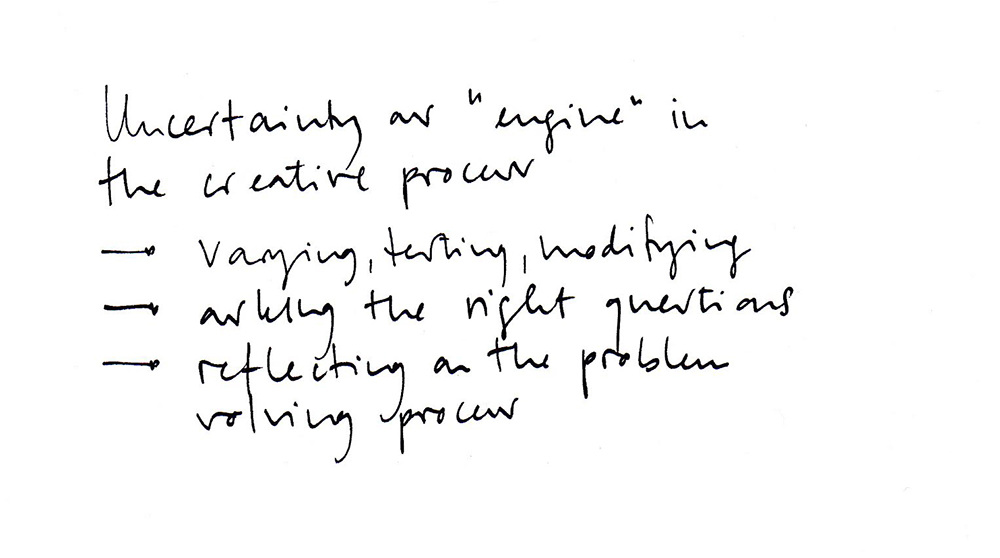 Uncertainty as "engine" in
the creative process
→ varying, testing, modifying
→ asking the right questions
→ reflecting on the problem
solving process